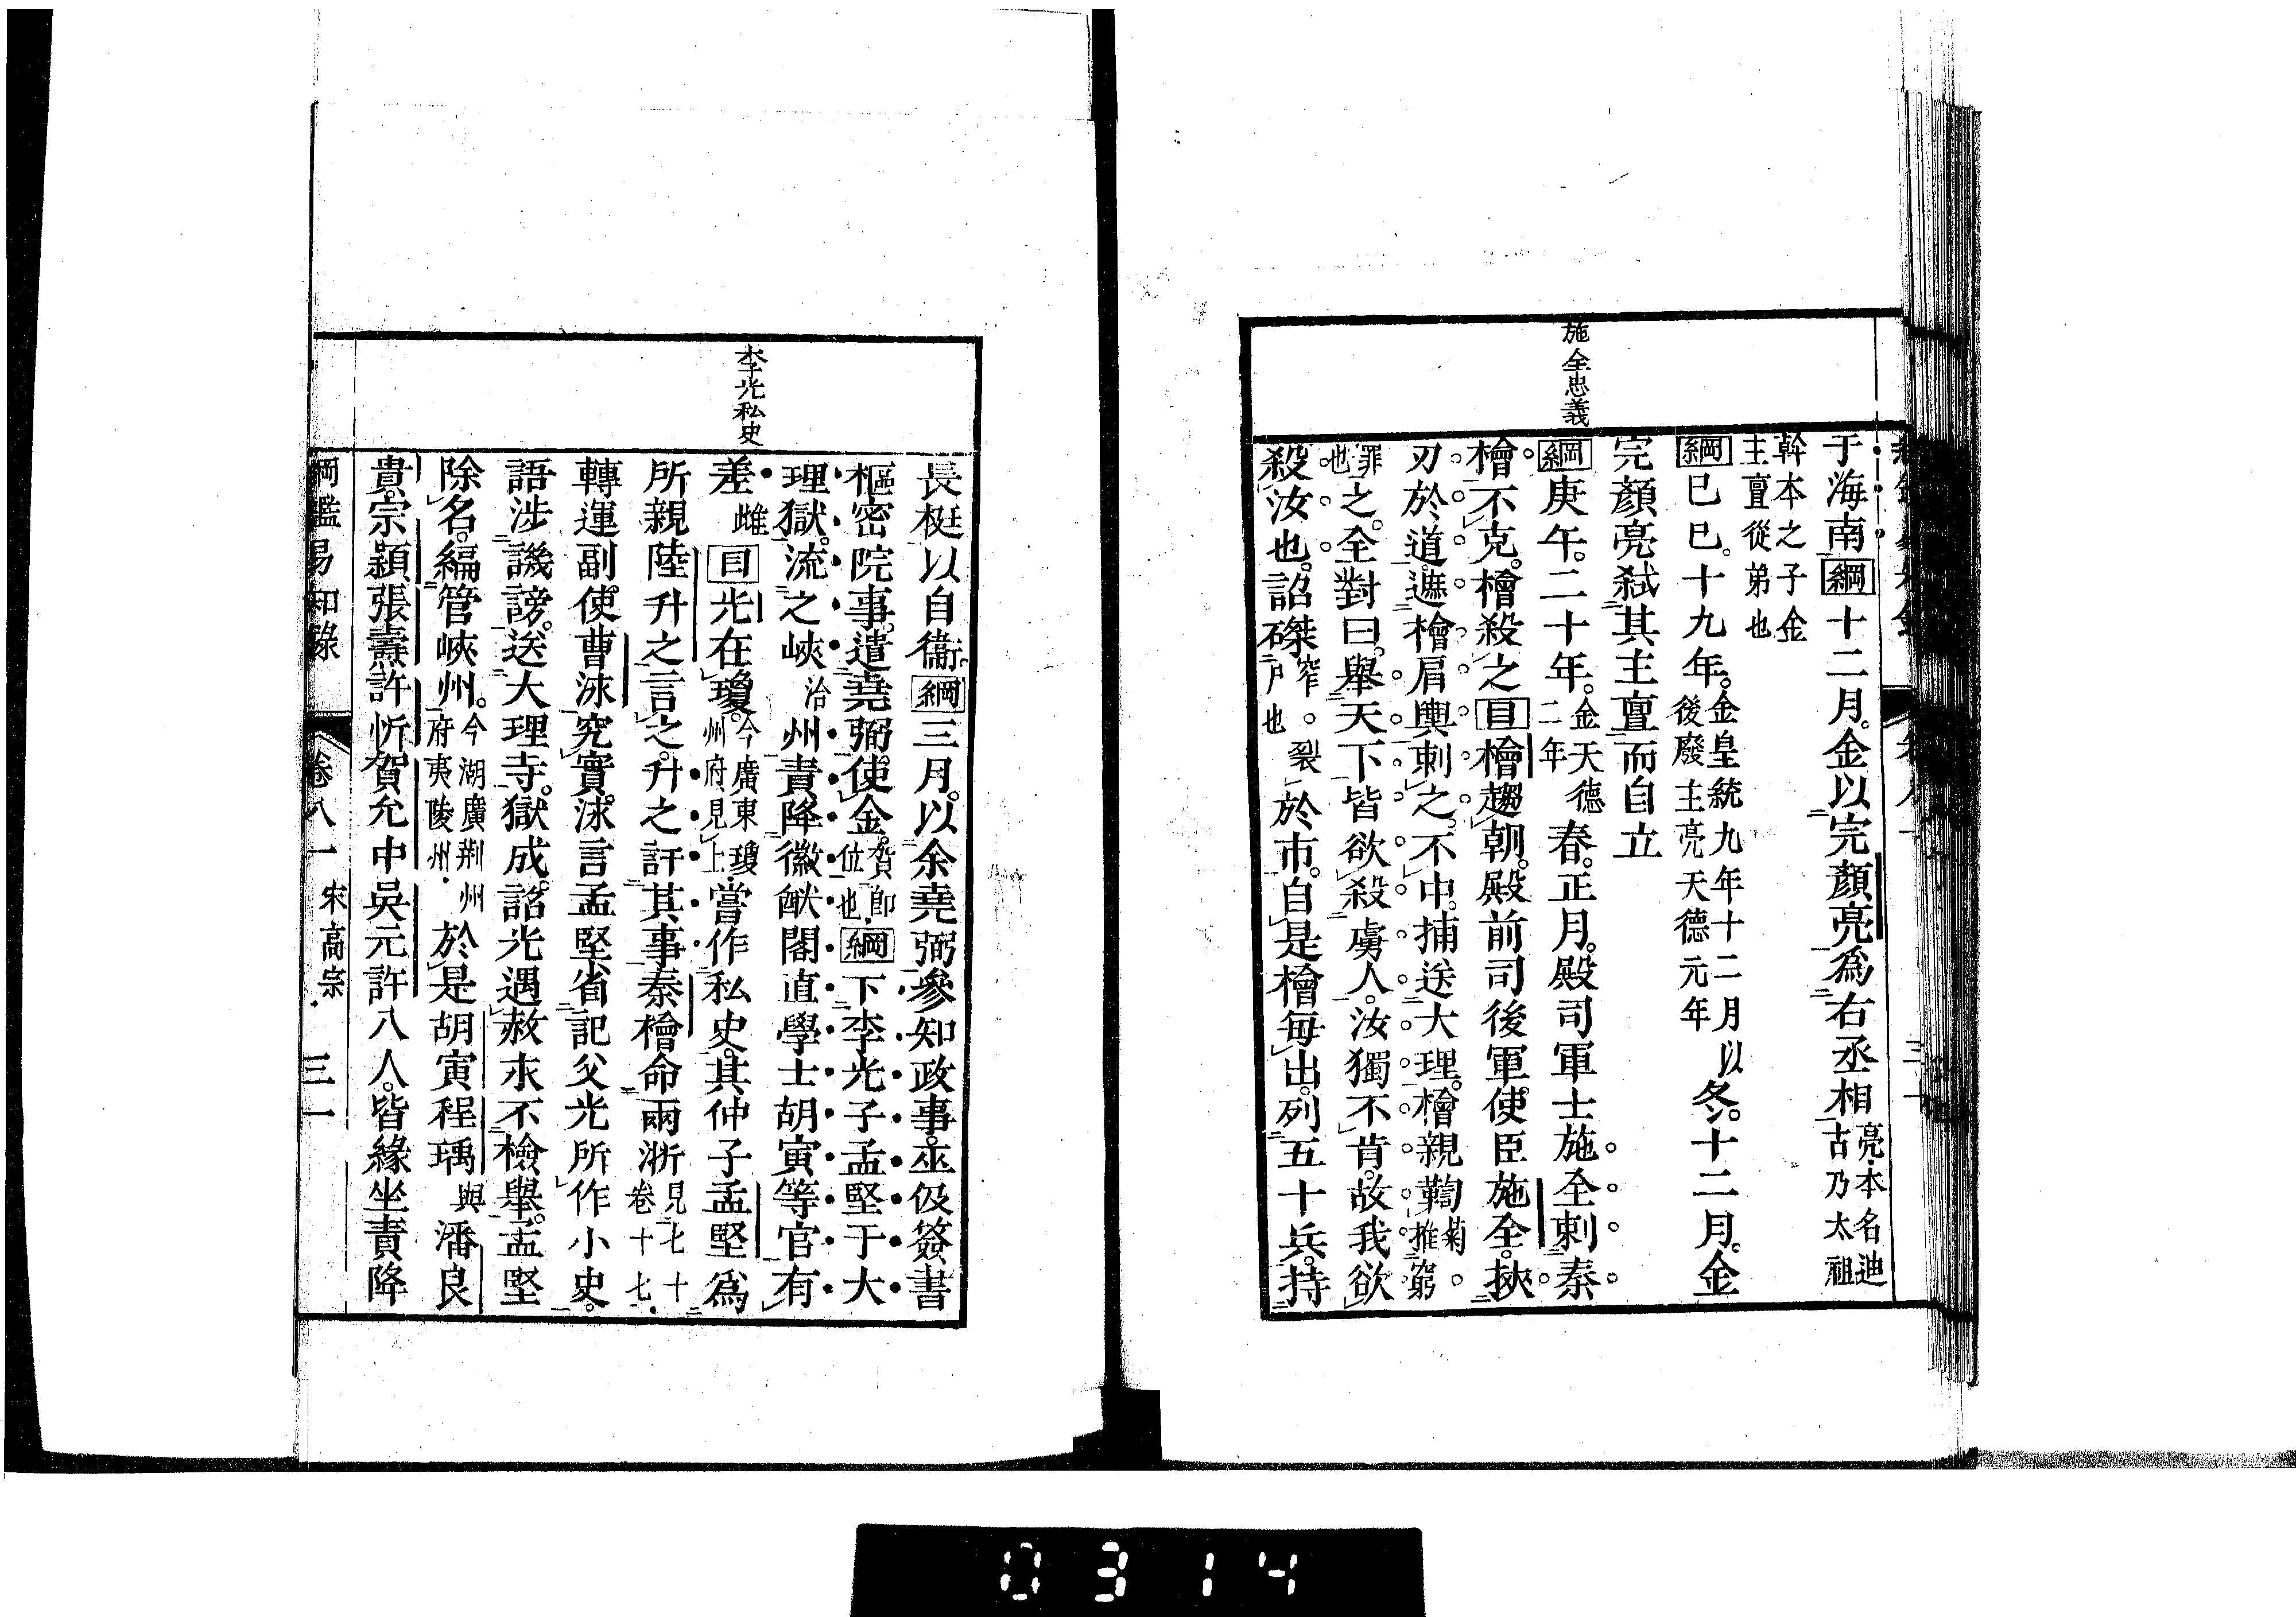 施全忠義
于海南綱十二月。金以完顏亮爲右丞相亮本名迪古乃太祖
斡本之子金主亶從弟也
綱己巳。十九年。金皇統九年十二月以後廢主亮天德元年冬。十二月。金
完顏亮弑其主亶而自立
綱庚午。二十年。金天德二年春。正月。殿司軍士施全刺秦
檜不克。檜殺之目檜趨朝。殿前司後軍使臣施全。挾
刃於道。遮檜肩輿刺之。不中。捕送大理。檜親鞫菊。推窮
罪也之。全對曰。舉天下皆欲殺虜人。汝獨不肯。故我欲
殺汝也。詔磔窄。裂尸也於市。自是檜每出。列五十兵。持
李光私史
長梃以自衞。綱三月。以余堯弼參知政事。巫伋簽書
樞密院事。遣堯弼使金。賀卽位也綱下李光子孟堅于大
理獄。流之峽洽州責降徽猷閣直學士胡寅等官有
差雌目光在瓊。今廣東瓊州府見上嘗作私史。其仲子孟堅爲
所親陸升之言之。升之訐其事。秦檜命兩浙見七十卷十七
轉運副使曹泳究實。泳言孟堅省記父光所作小史。
語涉譏謗。送大理寺。獄成。詔光遇赦永不檢舉。孟堅
除名。編管峽州。今湖廣荆州府夷陵州於是胡寅程瑀與潘良
貴。宗頴張燾許忻賀允中吳元許八人。皆緣坐責降
綱鑑易知錄 卷八一 宋高宗 三一
0314